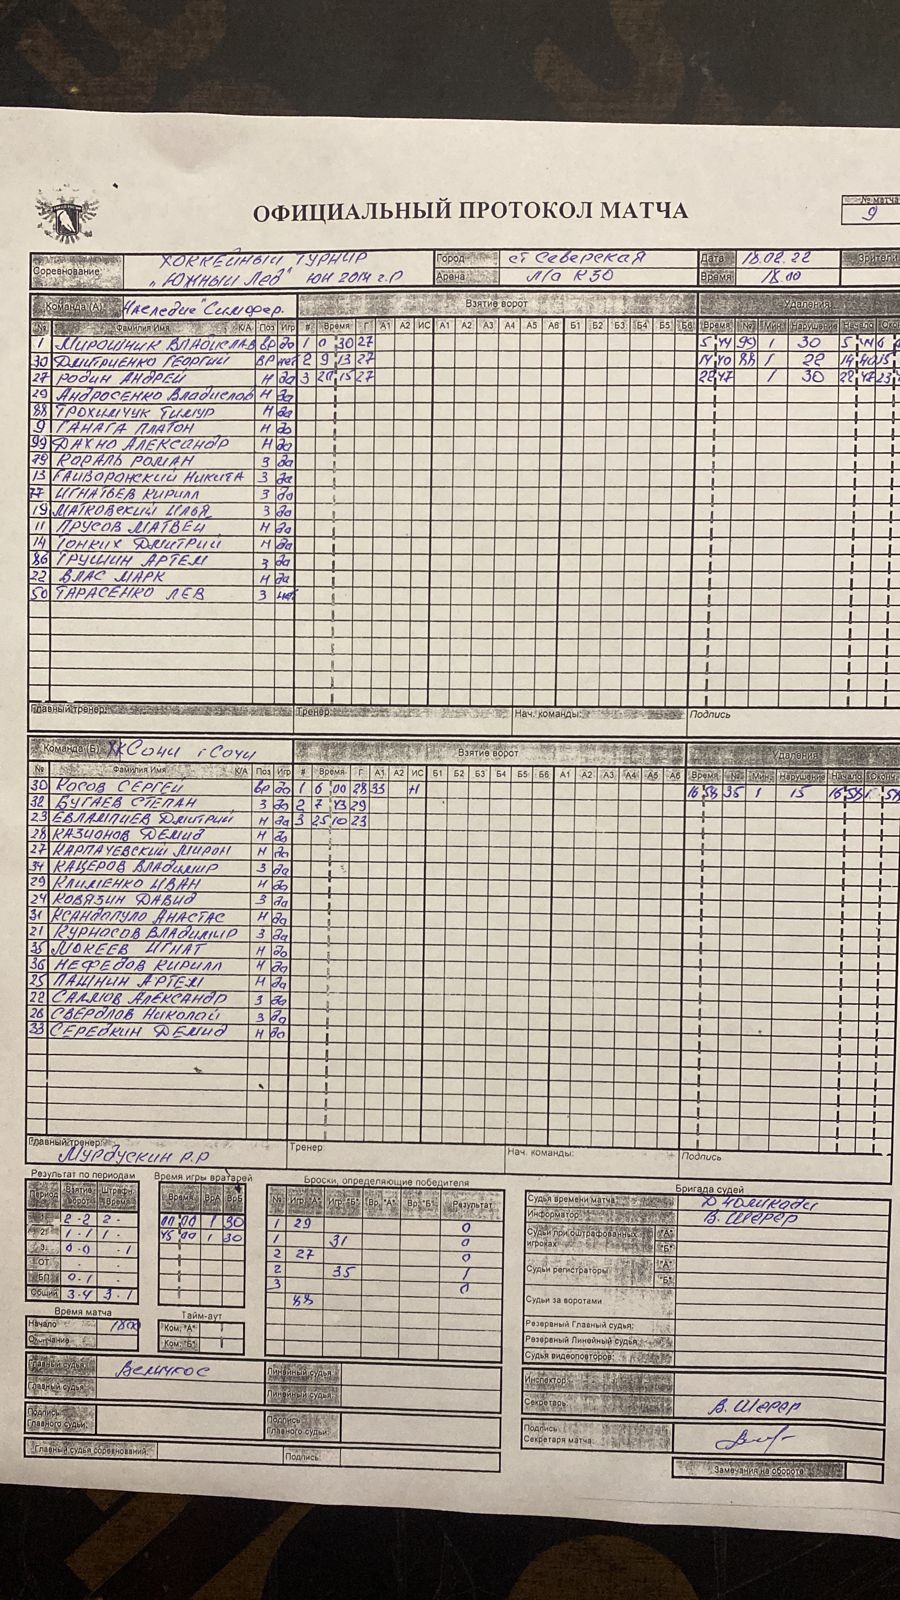 ОФИЦИАЛЬНЫЙ ПРОТОКОЛ МАТЧА
№ матча
9
Соревнование: ХОККЕЙНЫЙ ТУРНИР "ЮЖНЫЙ ЛЕД" ЮН 2014 г.р
Город ст СЕВЕРСКАЯ Дата 18.02.22 Зрители
Арена Л/а К 50 Время 18.00
Команда (А) Наследие" Симфер. Взятие ворот Удаления
№ Фамилия Имя К/А Поз Игр # Время Г А1 А2 ИС А1 А2 А3 А4 А5 А6 Б1 Б2 Б3 Б4 Б5 Б6 Время № Мин. Нарушение Начало
1 МИРОШНИК ВЛАДИСЛАВ вр да 1 0 30 27 5 44 99 1 30 5 44 6
30 ДМИТРИЕНКО ГЕОРГИЙ ВР нет 2 9 13 27 14 40 88 1 22 14 40 15
27 РОДИН АНДРЕЙ Н да 3 20 15 27 22 47 1 30 22 47 23
29 АНДРОСЕНКО ВЛАДИСЛАВ Н да
88 ТРОХИМЧУК ТИМУР Н да
9 ГАНАГА ПЛАТОН Н да
99 ДАХНО АЛЕКСАНДР Н да
79 КОРАЛЬ РОМАН З да
13 ГАЙВОРОНСКИЙ НИКИТА З да
77 ИГНАТЬЕВ КИРИЛЛ З да
19 МАТКОВСКИЙ ИЛЬЯ З да
11 ПРУСОВ МАТВЕЙ Н да
14 ТОНКИХ ДМИТРИЙ Н да
86 ТРУШИН АРТЕМ З да
22 ВЛАС МАРК Н да
50 ТАРАСЕНКО ЛЕВ З нет
Главный тренер: Тренер: Нач. команды: Подпись
Команда (Б) ХК Сочи г Сочи Взятие ворот Удаления
№ Фамилия Имя К/А Поз Игр # Время Г А1 А2 ИС Б1 Б2 Б3 Б4 Б5 Б6 А1 А2 А3 А4 А5 А6 Время № Мин. Нарушение Начало Оконч.
30 КОСОВ СЕРГЕЙ вр да 1 6 00 28 33 Н 16 58 35 1 15 16 58
32 БУГАЕВ СТЕПАН З да 2 7 43 29
23 ЕВЛАМПИЕВ ДМИТРИЙ Н да 3 25 10 23
28 КАЗИОНОВ ДЕМИД Н да
27 КАРПАЧЕВСКИЙ МИРОН Н да
34 КАЦЕРОВ ВЛАДИМИР З да
29 КЛИМЕНКО ИВАН Н да
24 КОВЯЗИН ДАВИД З да
31 КСАНДОПУЛО АНАСТАС Н да
21 КУРНОСОВ ВЛАДИМИР З да
35 МОКЕЕВ ИГНАТ Н да
36 НЕФЕДОВ КИРИЛЛ Н да
25 ПАШНИН АРТЕМ Н да
22 САЛМОВ АЛЕКСАНДР З да
26 СВЕРДЛОВ НИКОЛАЙ З да
33 СЕРЕДКИН ДЕМИД Н да
Главный тренер: Тренер: Нач. команды: Подпись
Мурдускин Р.Р
Результат по периодам
Период Взятие ворот Штрафн. Время
1 2 - 2 2 -
2 1 - 1 1 -
3 0 - 0 - 1
ОТ
БП 0 - 1
Общий 3 - 4 3 - 1
Время матча
Начало 18 00
Окончание
Время игры вратарей
Время ВрА ВрБ
00 00 1 30
45 00 1 30
Тайм-аут
Ком. "А"
Ком. "Б"
Броски, определяющие победителя
№ Игр. "А" Игр. "Б" Вр. "А" Вр. "Б" Результат
1 29 0
1 31 0
2 27 0
2 35 1
3 88 0
Бригада судей
Судья времени матча:
Информатор: В. Шерер
Судьи при оштрафованных игроках "А" "Б"
Судьи регистраторы "А" "Б"
Судьи за воротами
Резервный Главный судья:
Резервный Линейный судья:
Судья видеоповторов:
Главный судья Линейный судья
Главный судья Линейный судья
Инспектор:
Секретарь В. Шерер
Подпись Главного судьи: Подпись Главного судьи:
Подпись Секретаря матча:
Главный судья соревнований: Подпись:
Замечания на обороте